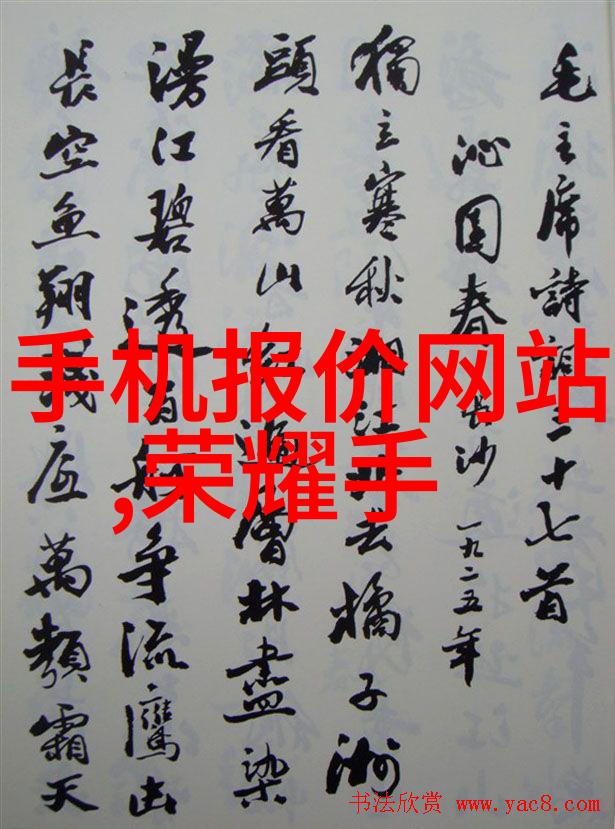 毛主席詩詞三十七首
沁園春 長沙 一九二五年
獨立寒秋湘江北去橘子洲
頭看萬山紅遍層林盡染
漫江碧透百舸争流鷹击
長空魚翔淺底萬類霜天
手机报价网站
,荣耀手
书法欣赏 www.yac8.com